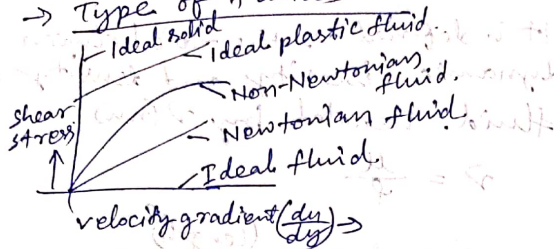 → Type of
Ideal solid
Ideal plastic fluid.
Non-Newtonian
fluid.
Newtonian fluid.
Ideal fluid.
shear
stress
velocity gradient (du/dy) →